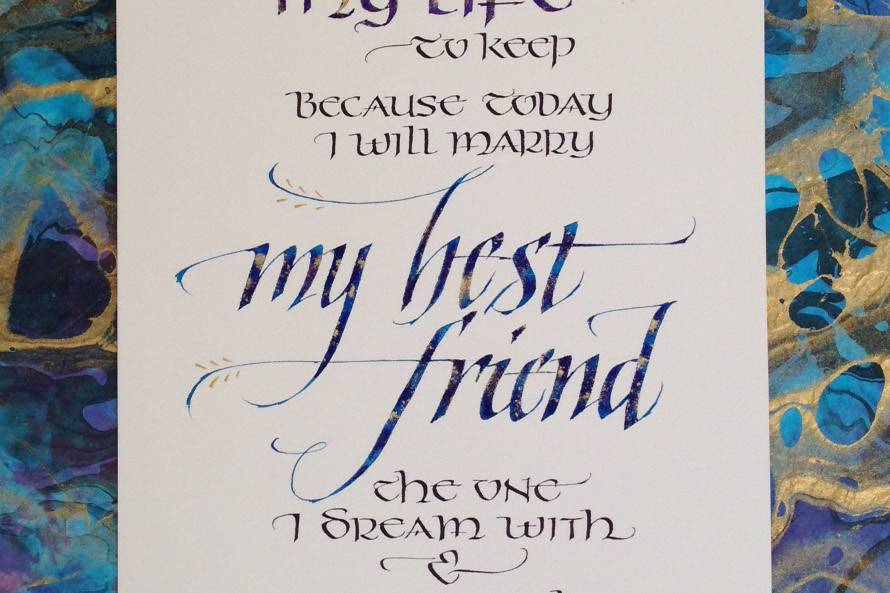 my life
to keep
Because today
I will marry
my best
friend
the one
I dream with
&